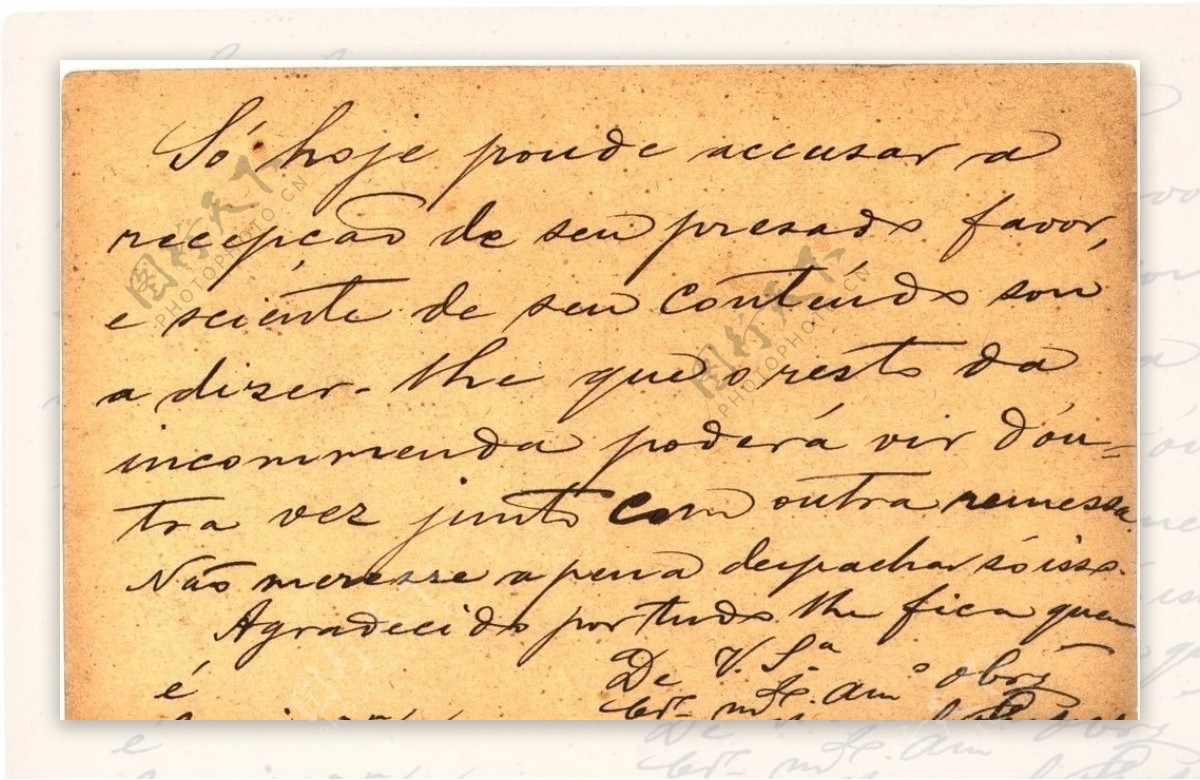 Só hoje poude accusar a
recepção de seu presado favor,
e sciente de seu contéudo sou
a dizer-lhe que o resto da
incommenda poderá vir d'óu=
tra vez junto com outra remessa.
Não meresse a pena despachar só isso.
Agradecido por tudo lhe fica quem
é
De V. S.ª
am.º obr.º
图行天下
PHOTOPHOTO.CN
图行天下
PHOTOPHOTO.CN